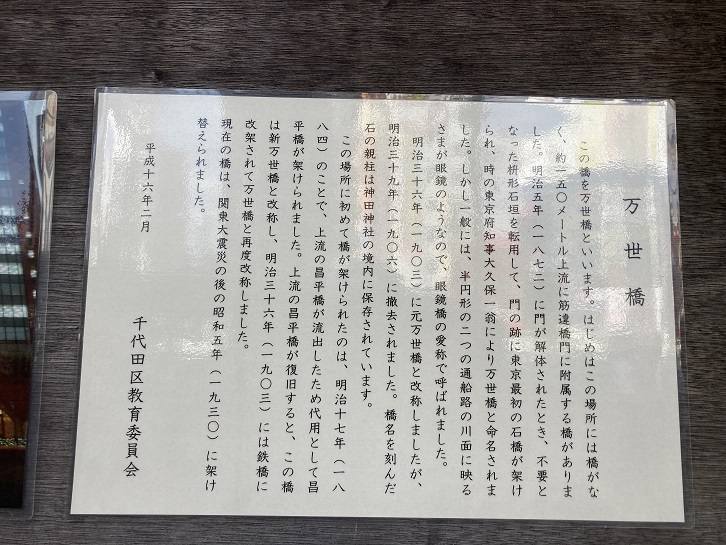 万世橋
この橋を万世橋といいます。はじめはこの場所には橋がな
く、約一五〇メートル上流に筋違橋門に附属する橋がありま
した。明治五年（一八七二）に門が解体されたとき、不要と
なった枡形石垣を転用して、門の跡に東京最初の石橋が架け
られ、時の東京府知事大久保一翁により万世橋と命名されま
した。しかし一般には、半円形の二つの通船路の川面に映る
さまが眼鏡のようなので、眼鏡橋の愛称で呼ばれました。
明治三十六年（一九〇三）に元万世橋と改称しましたが、
明治三十九年（一九〇六）に撤去されました。橋名を刻んだ
石の親柱は神田神社の境内に保存されています。
この場所に初めて橋が架けられたのは、明治十七年（一八
八四）のことで、上流の昌平橋が流出したため代用として昌
平橋が架けられました。上流の昌平橋が復旧すると、この橋
は新万世橋と改称し、明治三十六年（一九〇三）には鉄橋に
改架されて万世橋と再度改称しました。
現在の橋は、関東大震災の後の昭和五年（一九三〇）に架け
替えられました。
平成十六年二月
千代田区教育委員会